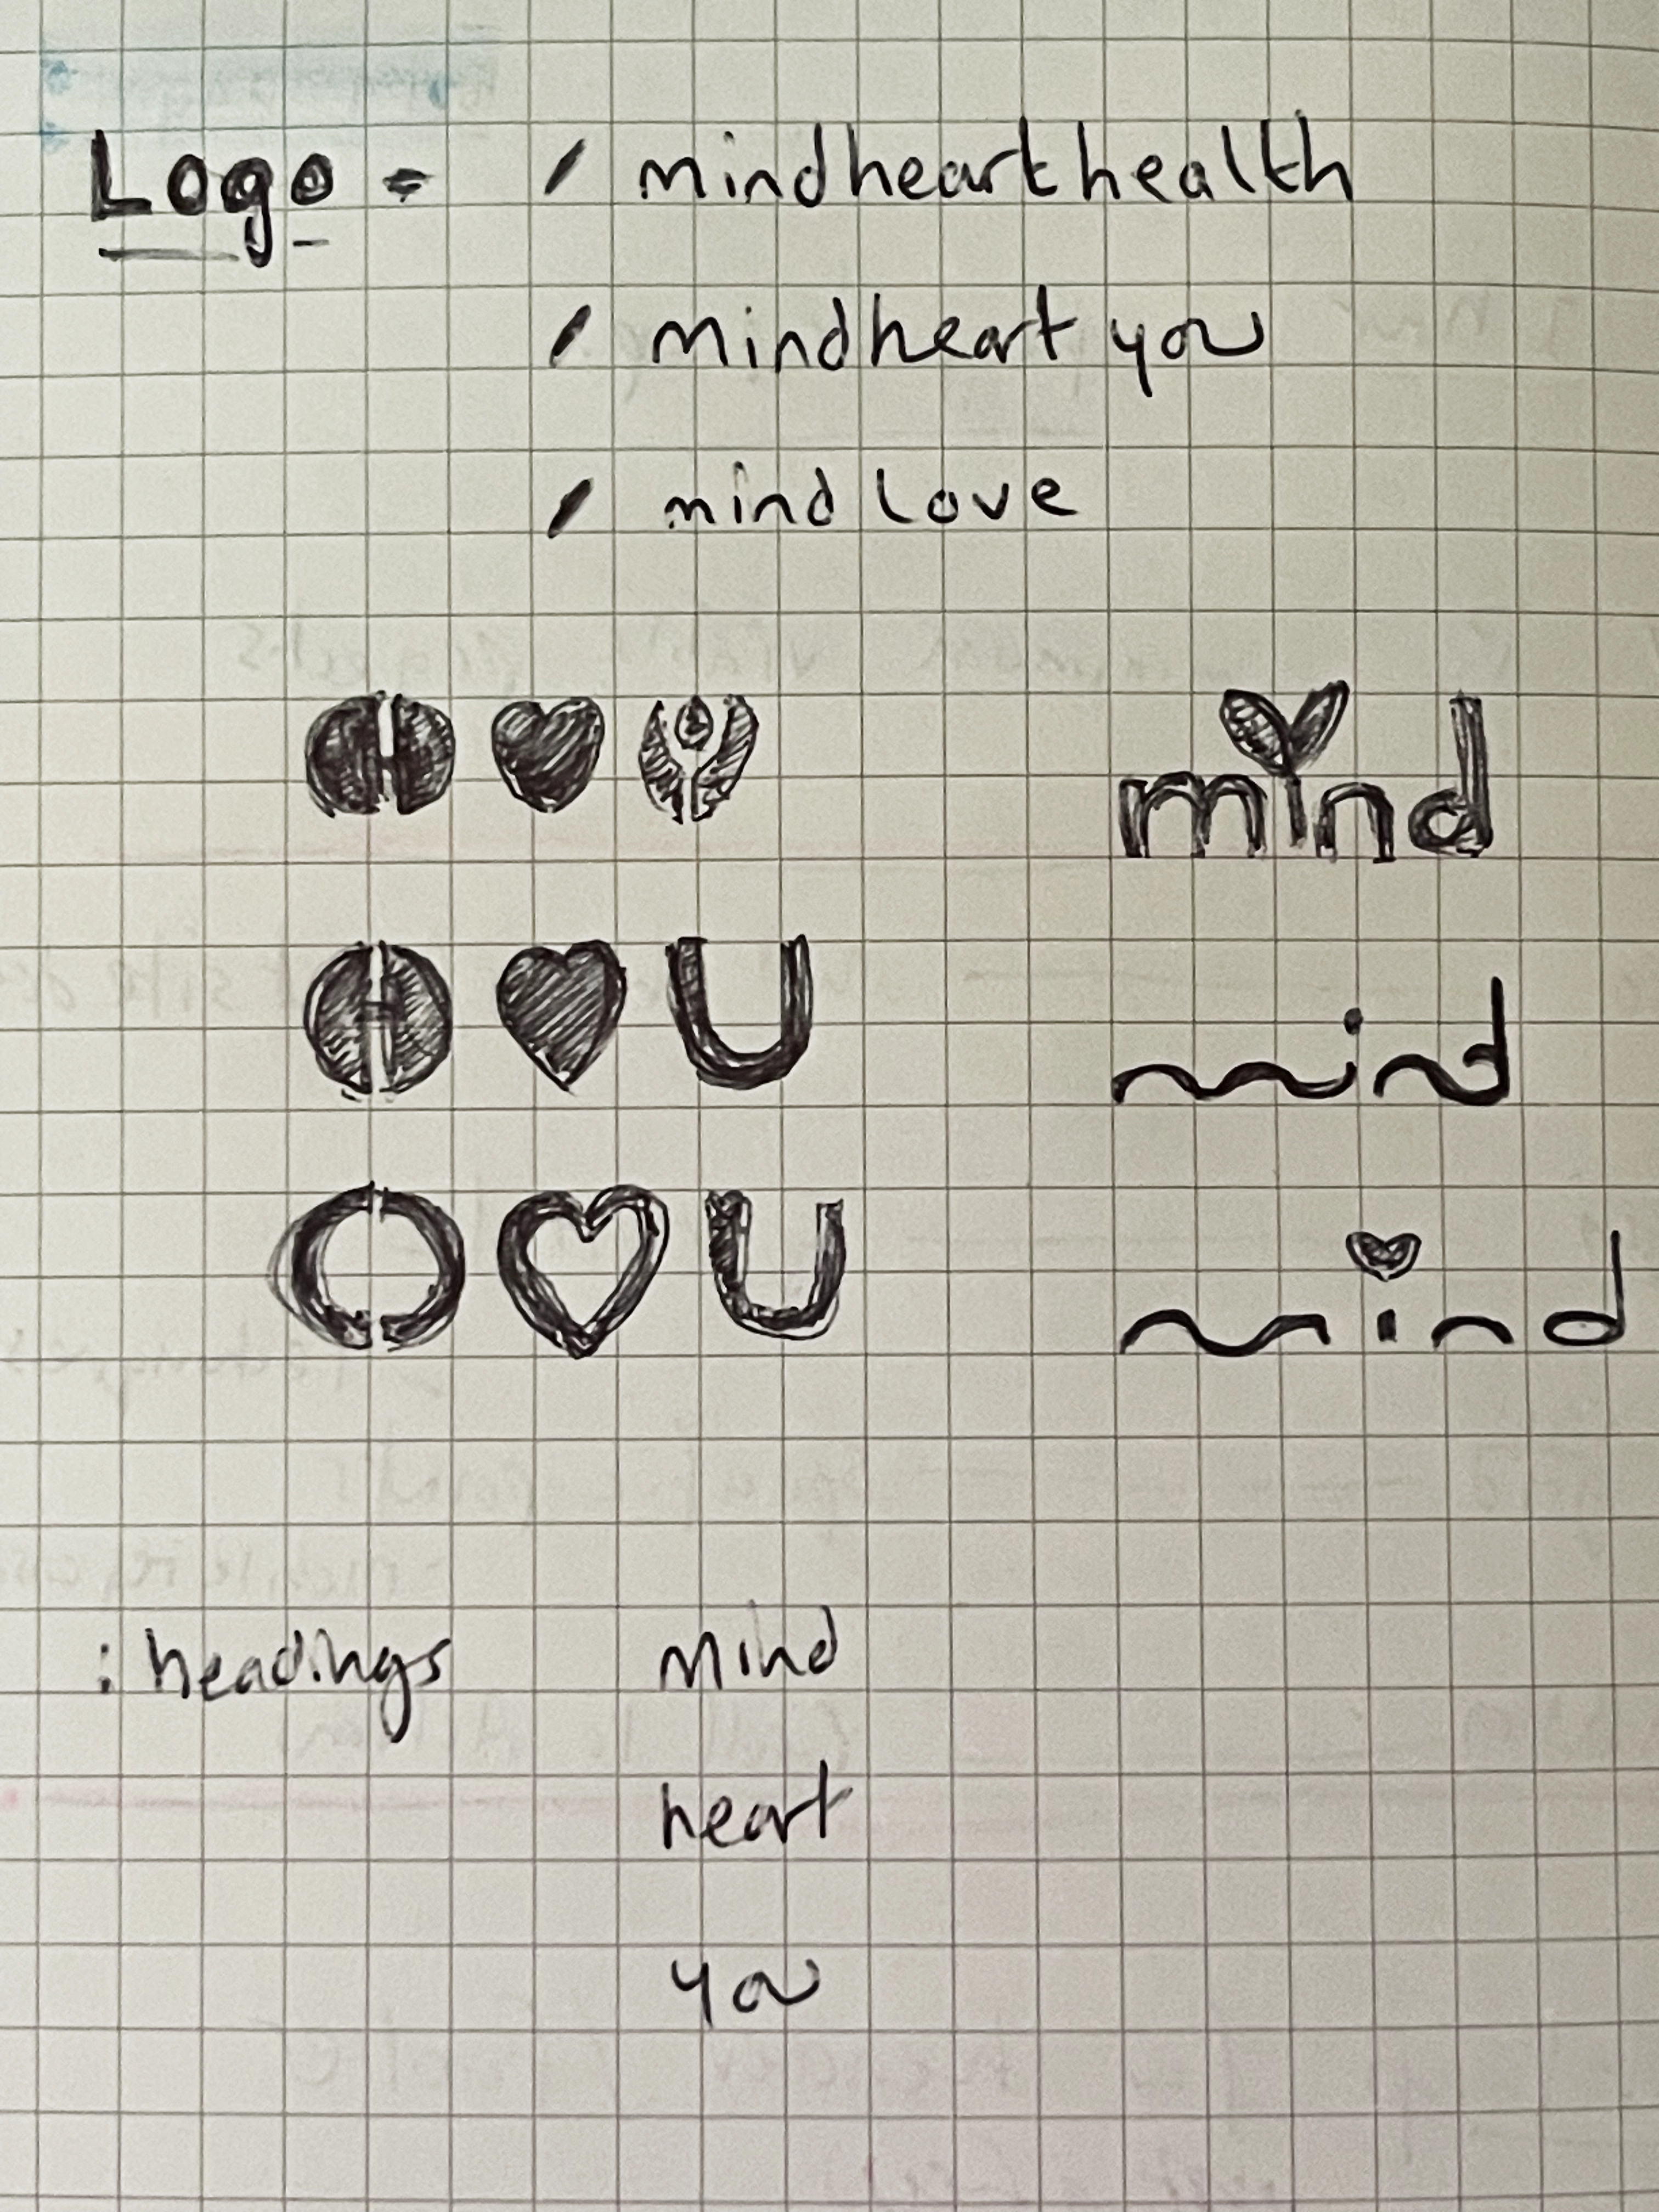 Logo = / mindhearthealth
/ mindheart you
/ mind love
mind
U
mind
U
mind
: headings mind
heart
you